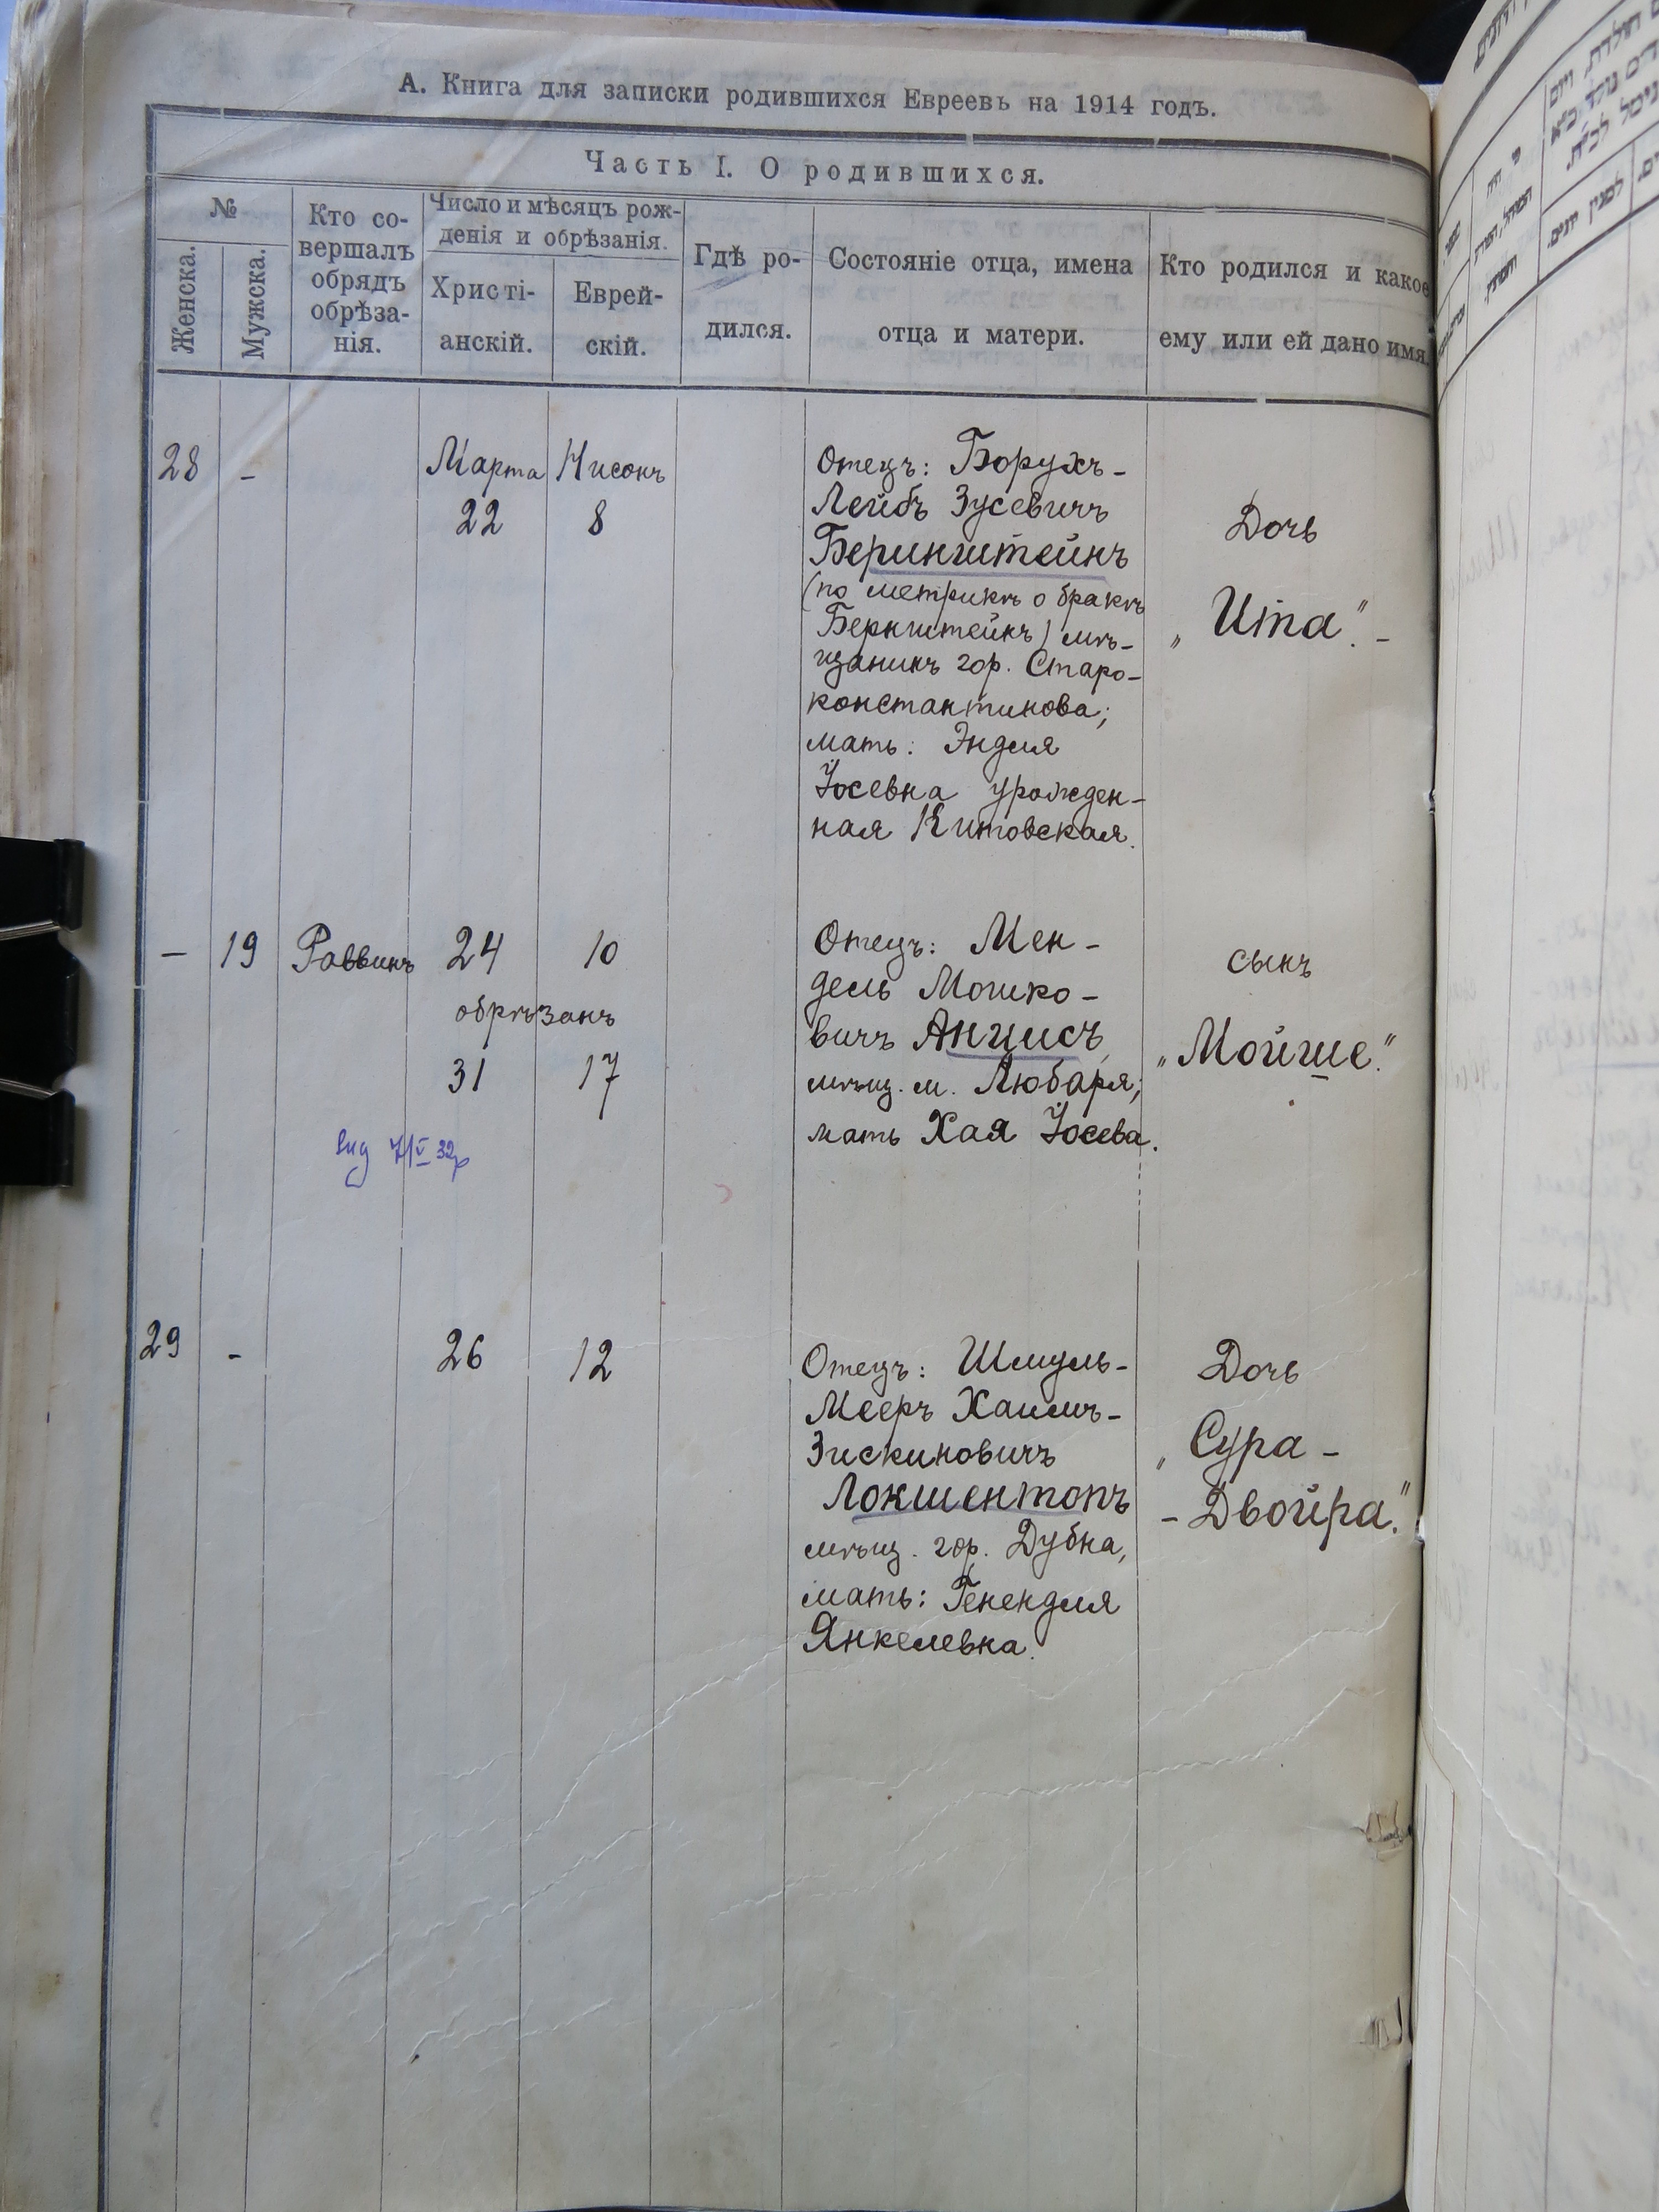 А. Книга для записки родившихся Евреевъ на 1914 годъ.
Часть I. О родившихся.
№
Женска.
Мужска.
Кто со-
вершалъ
обрядъ
обрѣза-
нія.
Число и мѣсяцъ рож-
денія и обрѣзанія.
Христі-
анскій.
Еврей-
скій.
Гдѣ ро-
дился.
Состояніе отца, имена
отца и матери.
Кто родился и какое
ему или ей дано имя.
28 - Марта Нисонъ
22 8
Отецъ: Борухъ-
Лейбъ Зусевичъ
Беринштейнъ
(по метрикѣ о бракѣ
Бернштейнъ) мѣ-
щанинъ гор. Старо-
константинова;
мать: Эндля
Іосевна урожден-
ная Китовская.
Дочь
„Ита“. -
- 19 Раввинъ 24 10
обрѣзанъ
31 17
Отецъ: Мен-
дель Мошко-
вичъ Анцисъ,
мѣщ. м. Любаря;
мать Хая Іосева.
сынъ
„Мойше“.
29 - 26 12
Отецъ: Шмуль-
Мееръ Хаимъ-
Зискиновичъ
Локшентопъ
мѣщ. гор. Дубна,
мать: Генендля
Янкелевна.
Дочь
„Сура-
-Двойра“.